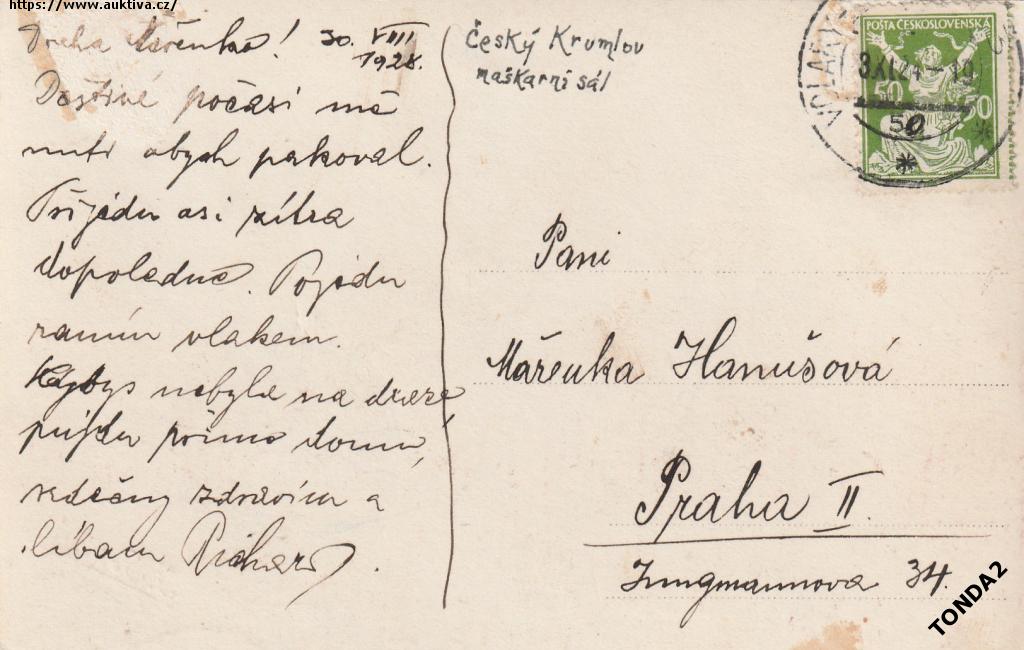 https://www.auktiva.cz/
Drahá Mařenko! 30. VIII
1928.
Deštivé počasí mě
nutí abych pakoval.
Přijedu asi zítra
dopoledne. Pojedu
ranním vlakem.
Kdybys nebyla na dráze
půjdu přímo domu,
srdečný zdravím a
líbám Richard.
Český Krumlov
maškarní sál
POŠTA ČESKOSLOVENSKA
50 50
VOLARY
3XI24-10
50
Pani
Mářenka Hanušová
Praha II.
Jungmannova 34.
TONDA2